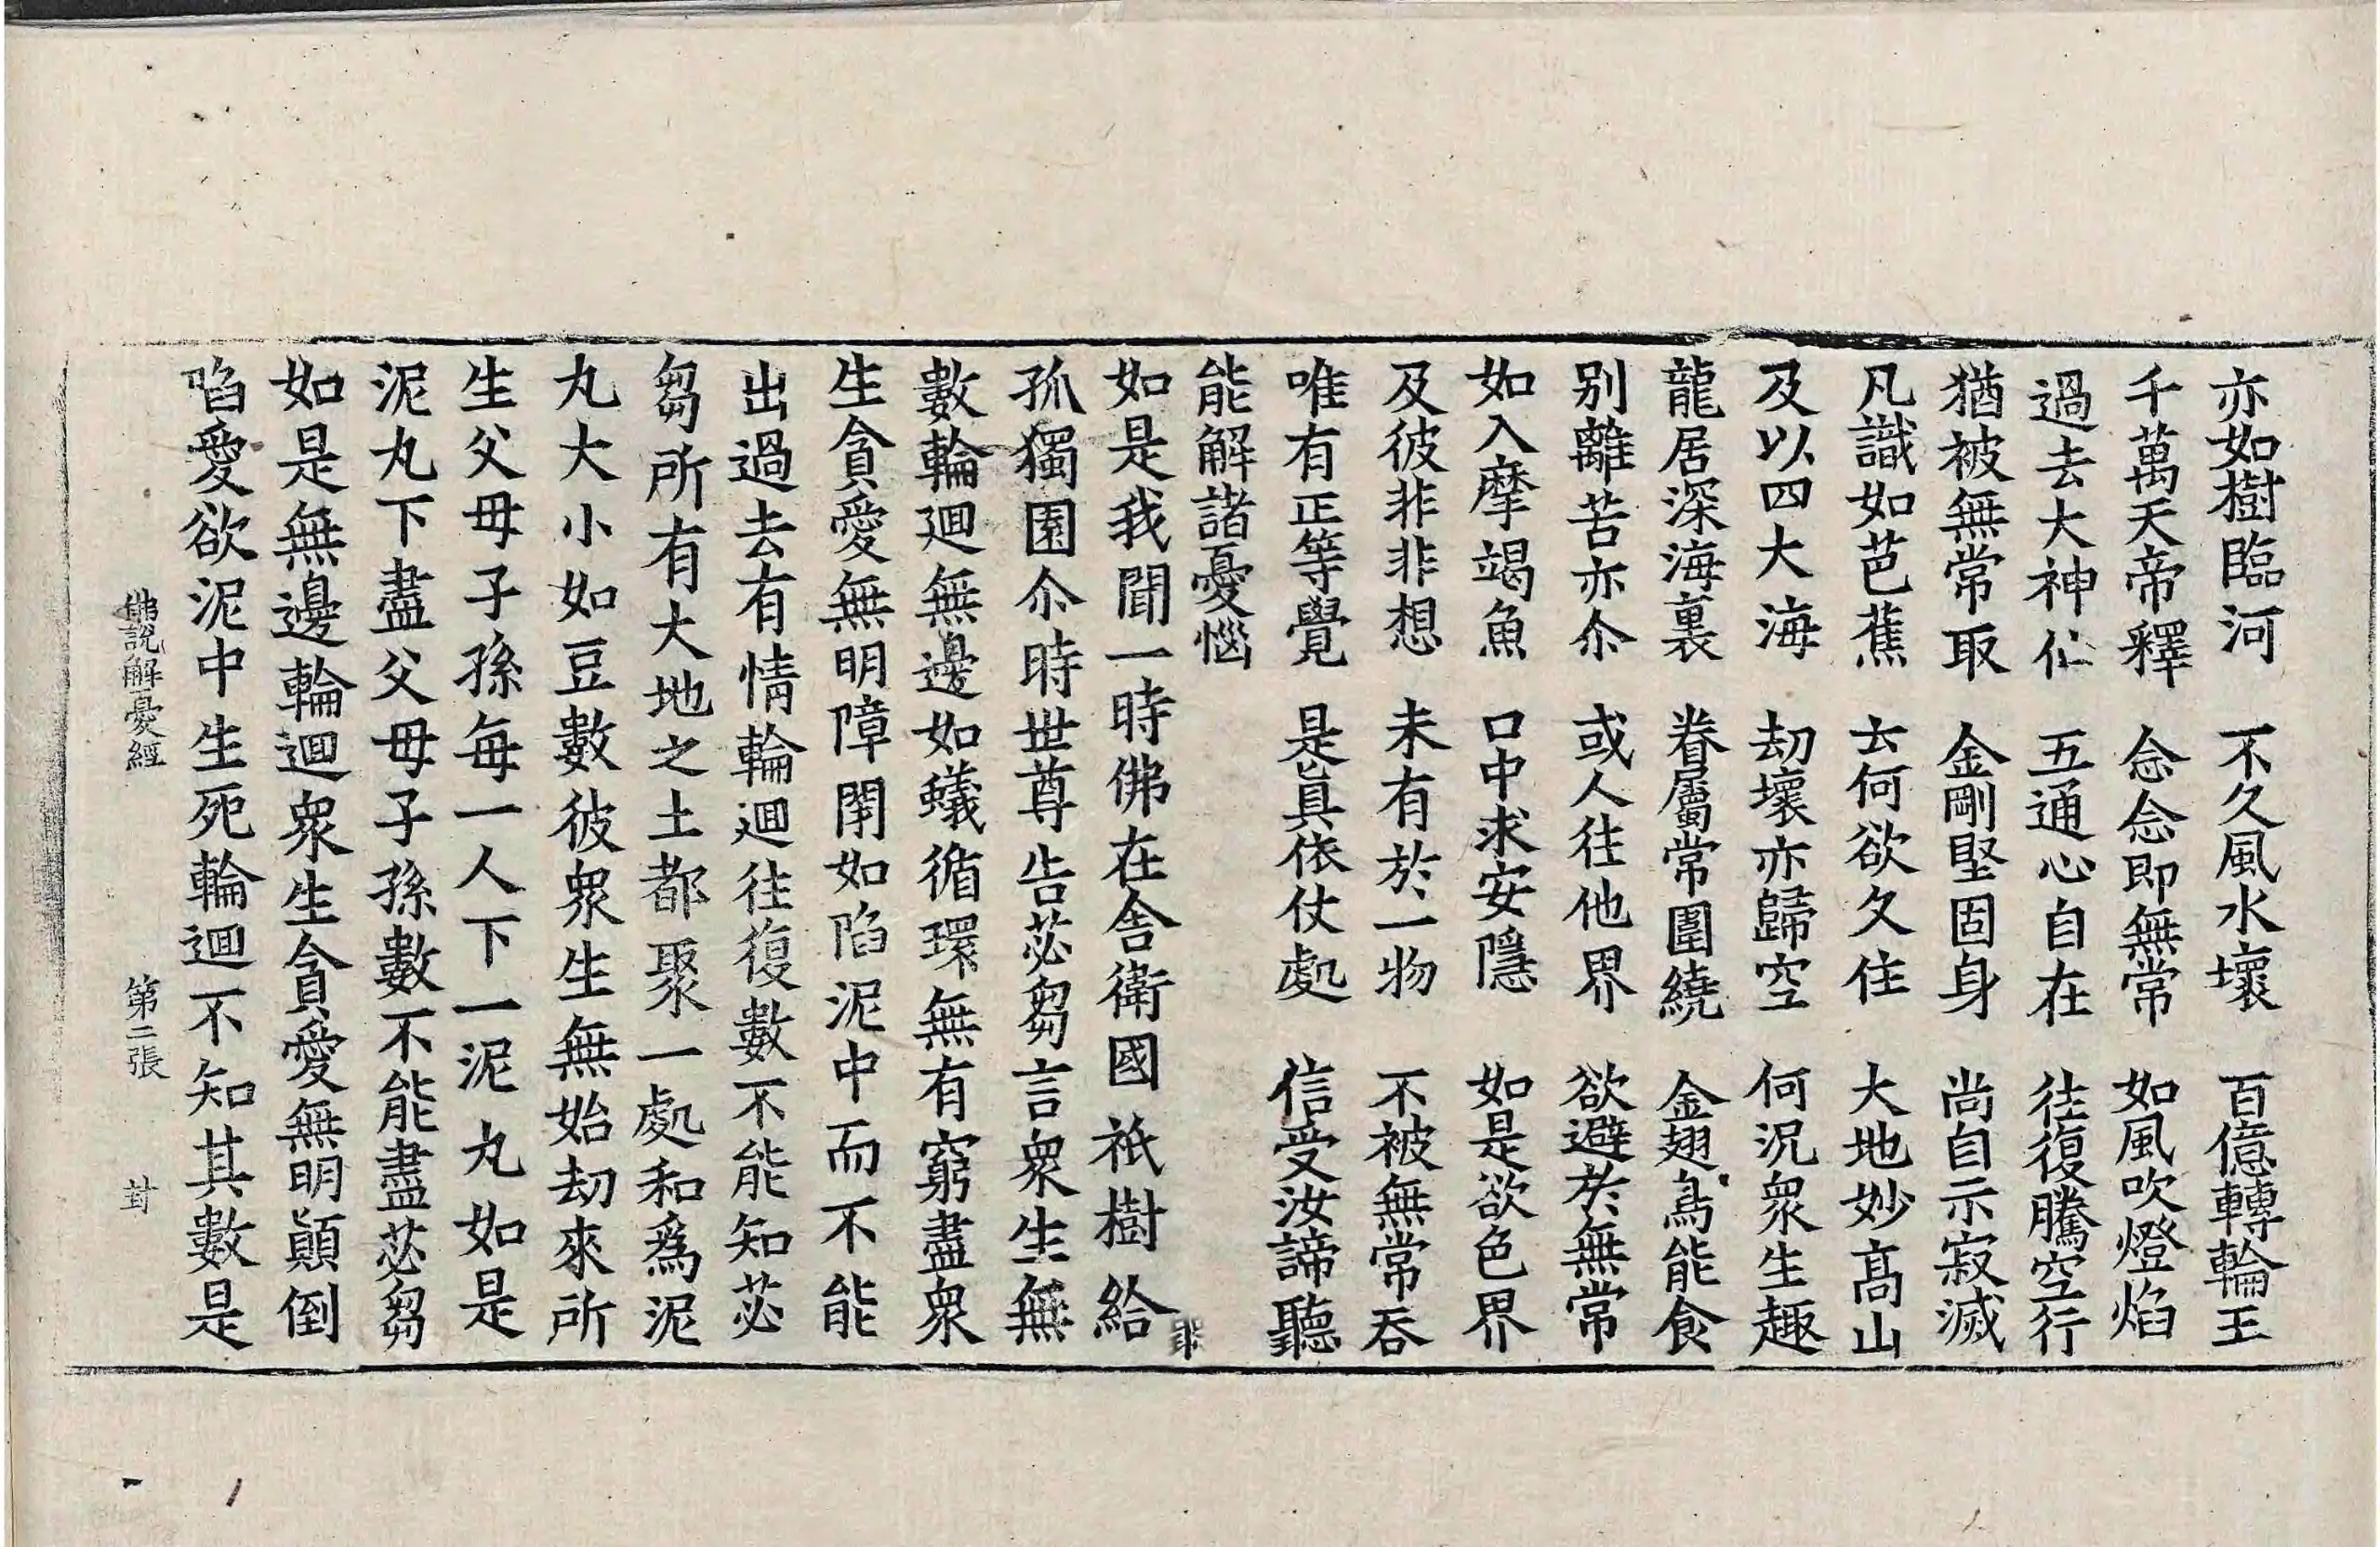 亦如樹臨河　不久風水壞　百億轉輪王
千萬天帝釋　念念即無常　如風吹燈焰
過去大神仚　五通心自在　往復騰空行
猶被無常取　金剛堅固身　尚自示寂滅
凡識如芭蕉　云何欲久住　大地妙髙山
及以四大海　劫壞亦歸空　何況衆生趣
龍居深海裏　眷屬常圍繞　金翅鳥能食
别離苦亦尒　或人往他界　欲避於無常
如入摩竭魚　口中求安隱　如是欲色界
及彼非非想　未有於一物　不被無常吞
唯有正等覺　是真依仗處　信受汝諦聽
能解諸憂惱
如是我聞一時佛在舎衛國祇樹給
孤獨園尒時世尊告苾芻言衆生無
數輪迴無邊如蟻循環無有窮盡衆
生貪愛無明障閉如陷泥中而不能
出過去有情輪迴往復數不能知苾
芻所有大地之土都聚一處和爲泥
丸大小如豆數彼衆生無始劫來所
生父母子孫每一人下一泥丸如是
泥丸下盡父母子孫數不能盡苾芻
如是無邊輪迴衆生貪愛無明顛倒
陷愛欲泥中生死輪迴不知其數是
佛説解憂經　第二張　葑